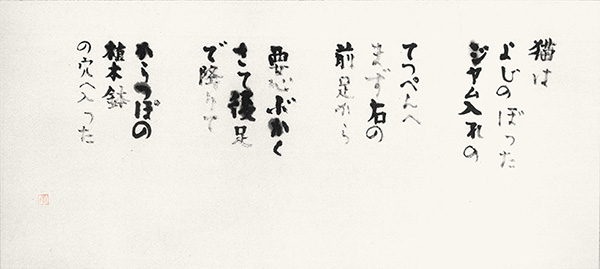 猫は
よじのぼった
ジャム入れの
てっぺんへ
まず右の
前足から
要心ぶかく
さて後足
で降りて
からっぽの
植木鉢
の穴へ入った